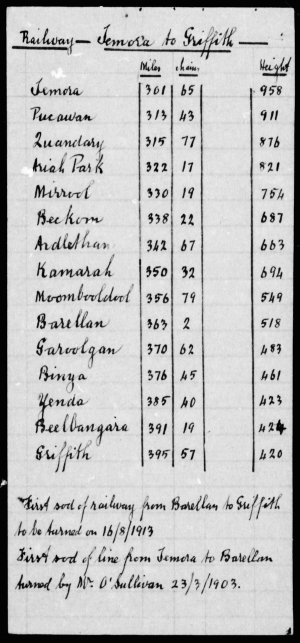 Railway — Temora to Griffith —
Miles Chains Height
Temora 301 65 958
Pucawan 313 43 911
Quandary 315 77 876
Ariah Park 322 17 821
Mirrool 330 19 754
Beckom 338 22 687
Ardlethan 342 67 663
Kamarah 350 32 694
Moombooldool 356 79 549
Barellan 363 2 518
Garoolgan 370 62 483
Binya 376 45 461
Yenda 385 40 423
Beelbangara 391 19 424
Griffith 395 57 420
First sod of railway from Barellan to Griffith
to be turned on 16/8/1913
First sod of line from Temora to Barellan
turned by Mr. O'Sullivan 23/3/1903.